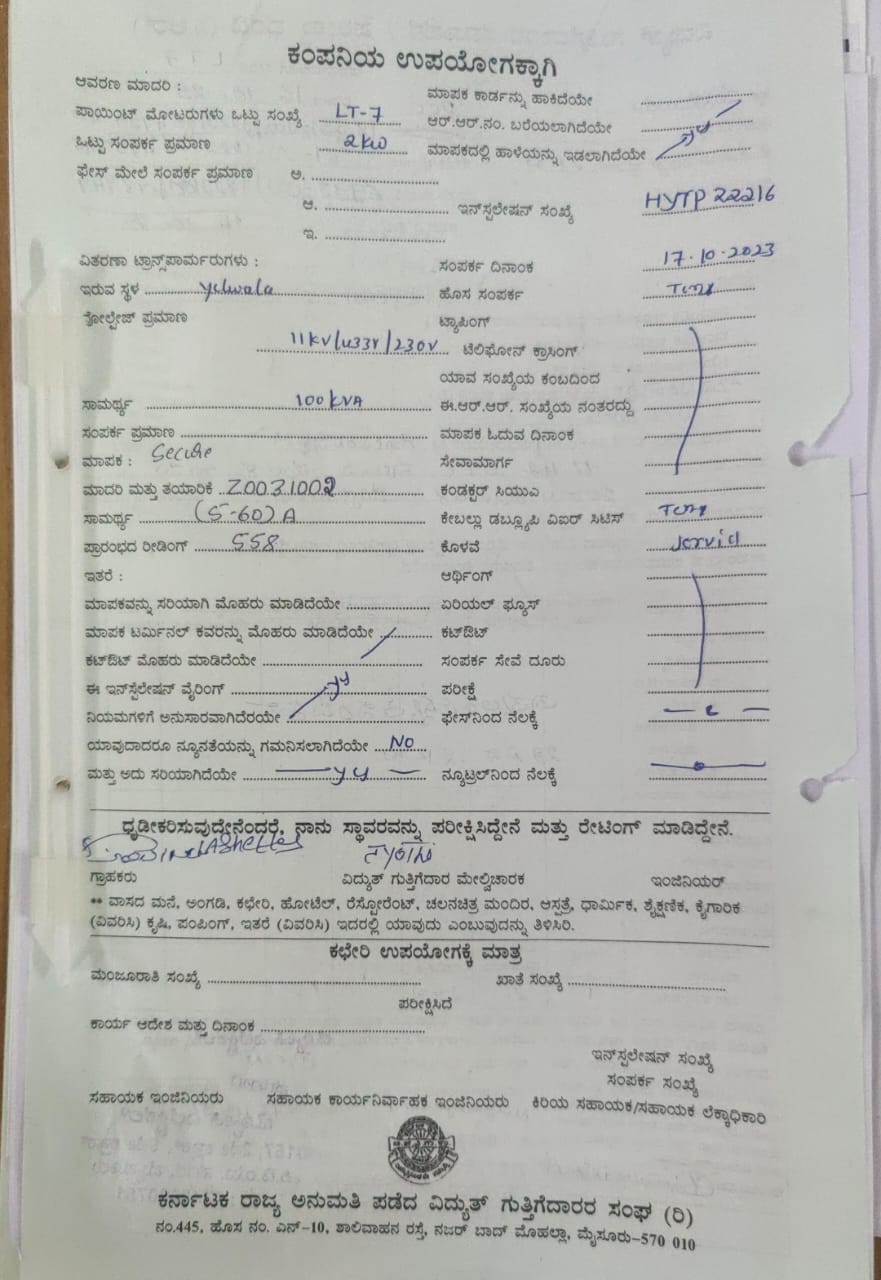 ಕಂಪನಿಯ ಉಪಯೋಗಕ್ಕಾಗಿ
ಆವರಣ ಮಾದರಿ : ಮಾಪಕ ಕಾರ್ಡನ್ನು ಹಾಕಿದೆಯೇ
ಪಾಯಿಂಟ್ ಮೋಟರುಗಳು ಒಟ್ಟು ಸಂಖ್ಯೆ LT-7 ಆರ್.ಆರ್.ನಂ. ಬರೆಯಲಾಗಿದೆಯೇ
ಒಟ್ಟು ಸಂಪರ್ಕ ಪ್ರಮಾಣ 2KW ಮಾಪಕದಲ್ಲಿ ಹಾಳೆಯನ್ನು ಇಡಲಾಗಿದೆಯೇ
ಫೇಸ್ ಮೇಲೆ ಸಂಪರ್ಕ ಪ್ರಮಾಣ ಅ.
ಆ. ಇನ್‌ಸ್ಪಲೇಷನ್ ಸಂಖ್ಯೆ HYTP 22216
ಇ.
ವಿತರಣಾ ಟ್ರಾನ್ಸ್‌ಪಾರ್ಮರುಗಳು : ಸಂಪರ್ಕ ದಿನಾಂಕ 17.10.2023
ಇರುವ ಸ್ಥಳ Yelwala ಹೊಸ ಸಂಪರ್ಕ
ವೋಲ್ಟೇಜ್ ಪ್ರಮಾಣ ಟ್ಯಾಪಿಂಗ್
11KV/433V/230V ಟೆಲಿಫೋನ್ ಕ್ರಾಸಿಂಗ್
ಯಾವ ಸಂಖ್ಯೆಯ ಕಂಬದಿಂದ
ಸಾಮರ್ಥ್ಯ 100KVA ಈ.ಆರ್.ಆರ್. ಸಂಖ್ಯೆಯ ನಂತರದ್ದು
ಸಂಪರ್ಕ ಪ್ರಮಾಣ ಮಾಪಕ ಓದುವ ದಿನಾಂಕ
ಮಾಪಕ : Secure ಸೇವಾಮಾರ್ಗ
ಮಾದರಿ ಮತ್ತು ತಯಾರಿಕೆ Z0031002 ಕಂಡಕ್ಟರ್ ಸಿಯುಎ
ಸಾಮರ್ಥ್ಯ (5-60)A ಕೇಬಲ್ಲು ಡಬ್ಲ್ಯೂಪಿ ವಿಐರ್ ಸಿಟಿಸ್
ಪ್ರಾರಂಭದ ರೀಡಿಂಗ್ 558 ಕೊಳವೆ
ಇತರೆ : ಆರ್ಥಿಂಗ್
ಮಾಪಕವನ್ನು ಸರಿಯಾಗಿ ಮೊಹರು ಮಾಡಿದೆಯೇ ಏರಿಯಲ್ ಫ್ಯೂಸ್
ಮಾಪಕ ಟರ್ಮಿನಲ್ ಕವರನ್ನು ಮೊಹರು ಮಾಡಿದೆಯೇ ಕಟ್‌ಔಟ್
ಕಟ್‌ಔಟ್ ಮೊಹರು ಮಾಡಿದೆಯೇ ಸಂಪರ್ಕ ಸೇವೆ ದೂರು
ಈ ಇನ್‌ಸ್ಪೆಲೇಷನ್ ವೈರಿಂಗ್ ಪರೀಕ್ಷೆ
ನಿಯಮಗಳಿಗೆ ಅನುಸಾರವಾಗಿದೆರಯೇ ಫೇಸ್‌ನಿಂದ ನೆಲಕ್ಕೆ
ಯಾವುದಾದರೂ ನ್ಯೂನತೆಯನ್ನು ಗಮನಿಸಲಾಗಿದೆಯೇ No
ಮತ್ತು ಅದು ಸರಿಯಾಗಿದೆಯೇ ನ್ಯೂಟ್ರಲ್‌ನಿಂದ ನೆಲಕ್ಕೆ
ಧೃಡೀಕರಿಸುವುದೇನೆಂದರೆ, ನಾನು ಸ್ಥಾವರವನ್ನು ಪರೀಕ್ಷಿಸಿದ್ದೇನೆ ಮತ್ತು ರೇಟಿಂಗ್ ಮಾಡಿದ್ದೇನೆ.
ಗ್ರಾಹಕರು ವಿದ್ಯುತ್ ಗುತ್ತಿಗೆದಾರ ಮೇಲ್ವಿಚಾರಕ ಇಂಜಿನಿಯರ್
** ವಾಸದ ಮನೆ, ಅಂಗಡಿ, ಕಛೇರಿ, ಹೋಟೆಲ್, ರೆಸ್ಟೋರೆಂಟ್, ಚಲನಚಿತ್ರ ಮಂದಿರ, ಆಸ್ಪತ್ರೆ, ಧಾರ್ಮಿಕ, ಶೈಕ್ಷಣಿಕ, ಕೈಗಾರಿಕ
(ವಿವರಿಸಿ) ಕೃಷಿ, ಪಂಪಿಂಗ್, ಇತರೆ (ವಿವರಿಸಿ) ಇದರಲ್ಲಿ ಯಾವುದು ಎಂಬುವುದನ್ನು ತಿಳಿಸಿರಿ.
ಕಛೇರಿ ಉಪಯೋಗಕ್ಕೆ ಮಾತ್ರ
ಮಂಜೂರಾತಿ ಸಂಖ್ಯೆ ಖಾತೆ ಸಂಖ್ಯೆ
ಪರೀಕ್ಷಿಸಿದೆ
ಕಾರ್ಯ ಆದೇಶ ಮತ್ತು ದಿನಾಂಕ
ಇನ್‌ಸ್ಪಲೇಷನ್ ಸಂಖ್ಯೆ
ಸಂಪರ್ಕ ಸಂಖ್ಯೆ
ಸಹಾಯಕ ಇಂಜಿನಿಯರು ಸಹಾಯಕ ಕಾರ್ಯನಿರ್ವಾಹಕ ಇಂಜಿನಿಯರು ಕಿರಿಯ ಸಹಾಯಕ/ಸಹಾಯಕ ಲೆಕ್ಕಾಧಿಕಾರಿ
ಕರ್ನಾಟಕ ರಾಜ್ಯ ಅನುಮತಿ ಪಡೆದ ವಿದ್ಯುತ್ ಗುತ್ತಿಗೆದಾರರ ಸಂಘ (ರಿ)
ನಂ.445, ಹೊಸ ನಂ. ಎನ್-10, ಶಾಲಿವಾಹನ ರಸ್ತೆ, ನಜರ್ ಬಾದ್ ಮೊಹಲ್ಲಾ, ಮೈಸೂರು-570 010